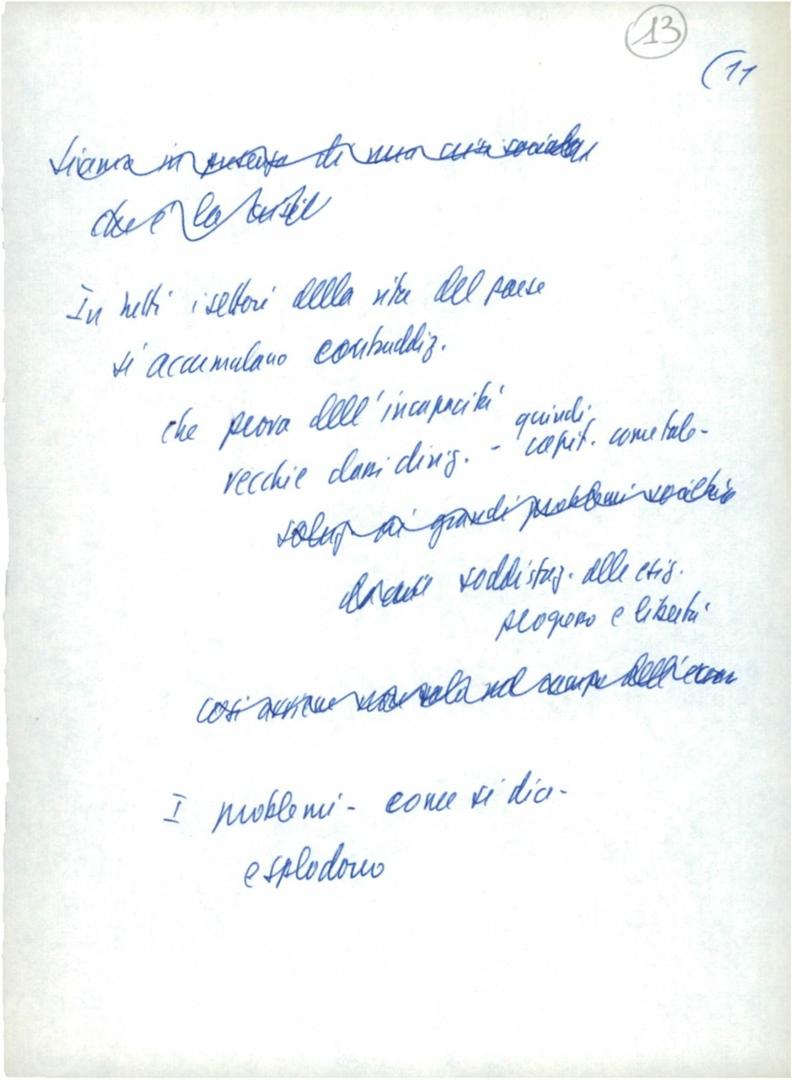 13
(11
siamo in presenza di una crisi sociale
che è la crisi
In tutti i settori della vita del paese
si accumulano contraddiz.
che prova dell'incapacità
quindi
vecchie classi dirig. - capit. come tale -
soluz. ai grandi problemi
soddisfaz. alle esig.
progresso e libertà
così avviene non solo nel campo dell'econ
I problemi - come si dice -
esplodono